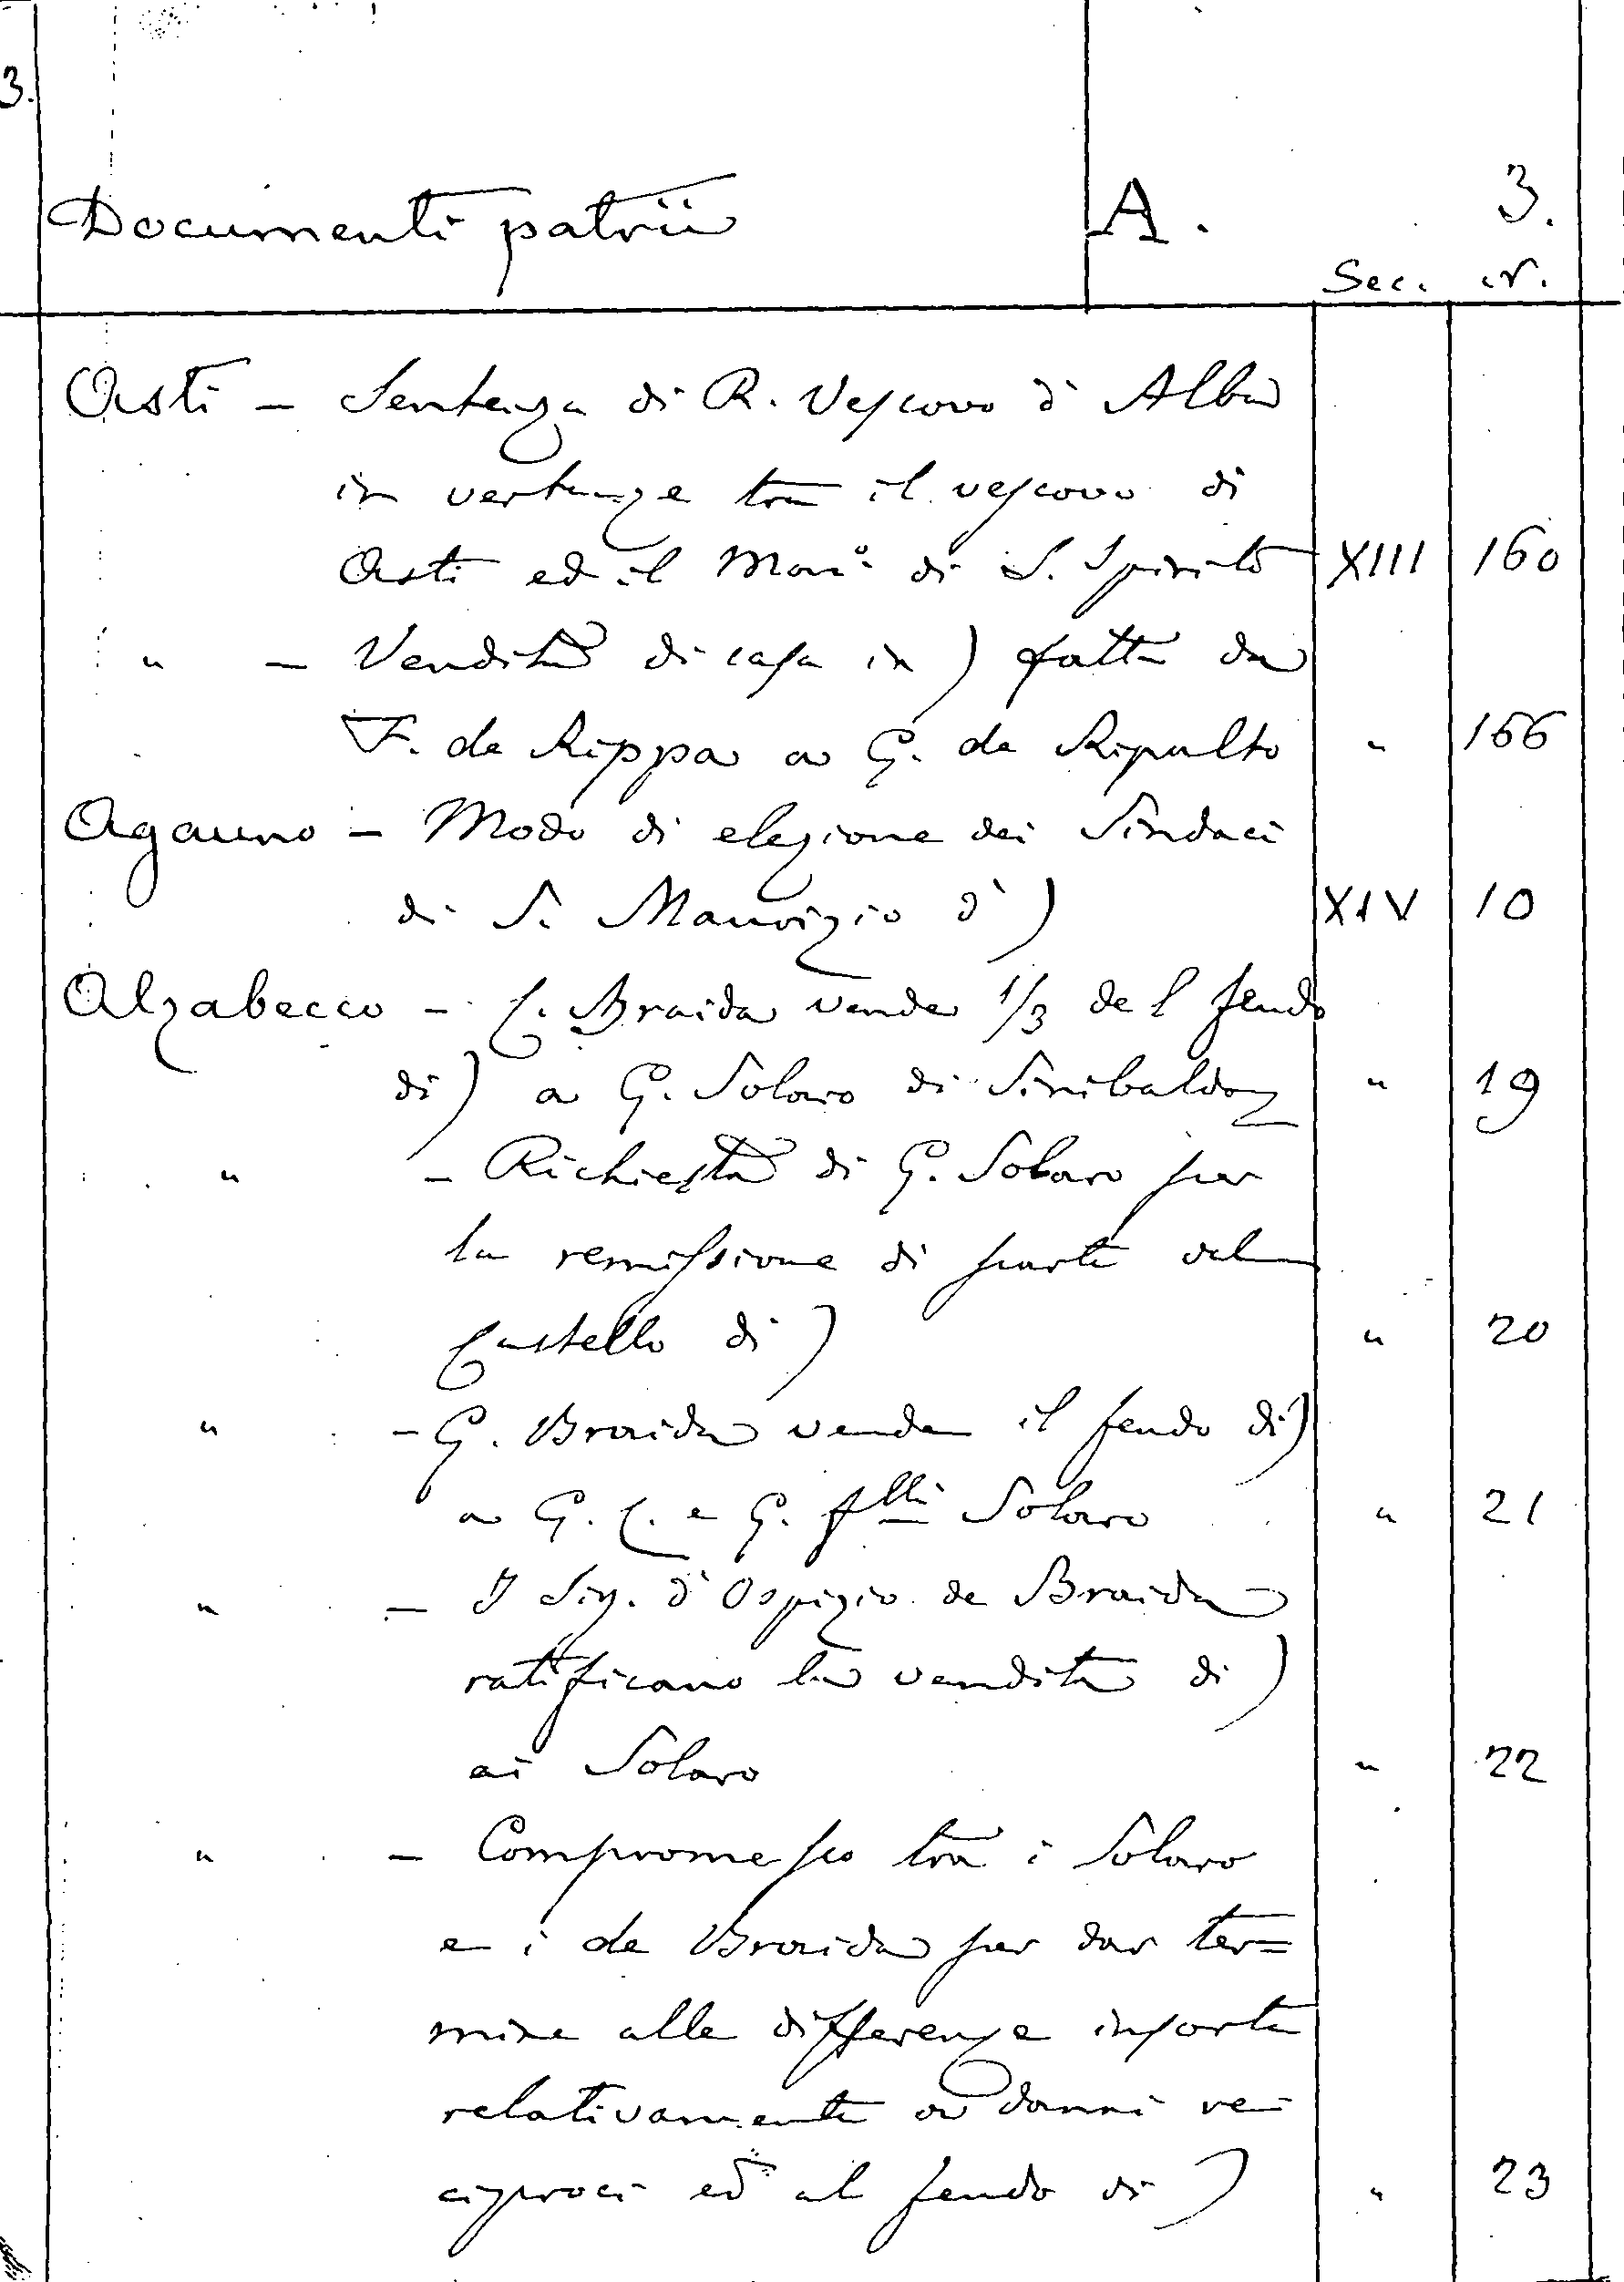 3.
Documenti patrii A. 3.
Sec. N.
Asti - Sentenza di R. Vescovo d'Alba
in vertenze tra il vescovo di
Asti ed il Mon.o di S. Spirito XIII 160
" - Vendita di casa in ) fatta da
F. de Rippa a G. de Ripalto " 166
Agauno - Modo di elezione dei Sindaci
di S. Maurizio d' ) XIV 10
Alzabecco - C. Braida vende 1/3 del feudo
di ) a G. Solaro di Sinibaldo " 19
" - Richiesta di G. Solaro per
la remissione di parte del
Castello di ) " 20
" - G. Braida vende il feudo di )
a G. C. e G. f.lli Solaro " 21
" - I Sig. d'Ospizio de Braida
ratificano la vendita di )
ai Solaro " 22
" - Compromesso tra i Solaro
e i de Braida per dar ter=
mine alle differenze insorte
relativamente a danni re-
ciproci ed al feudo di ) " 23